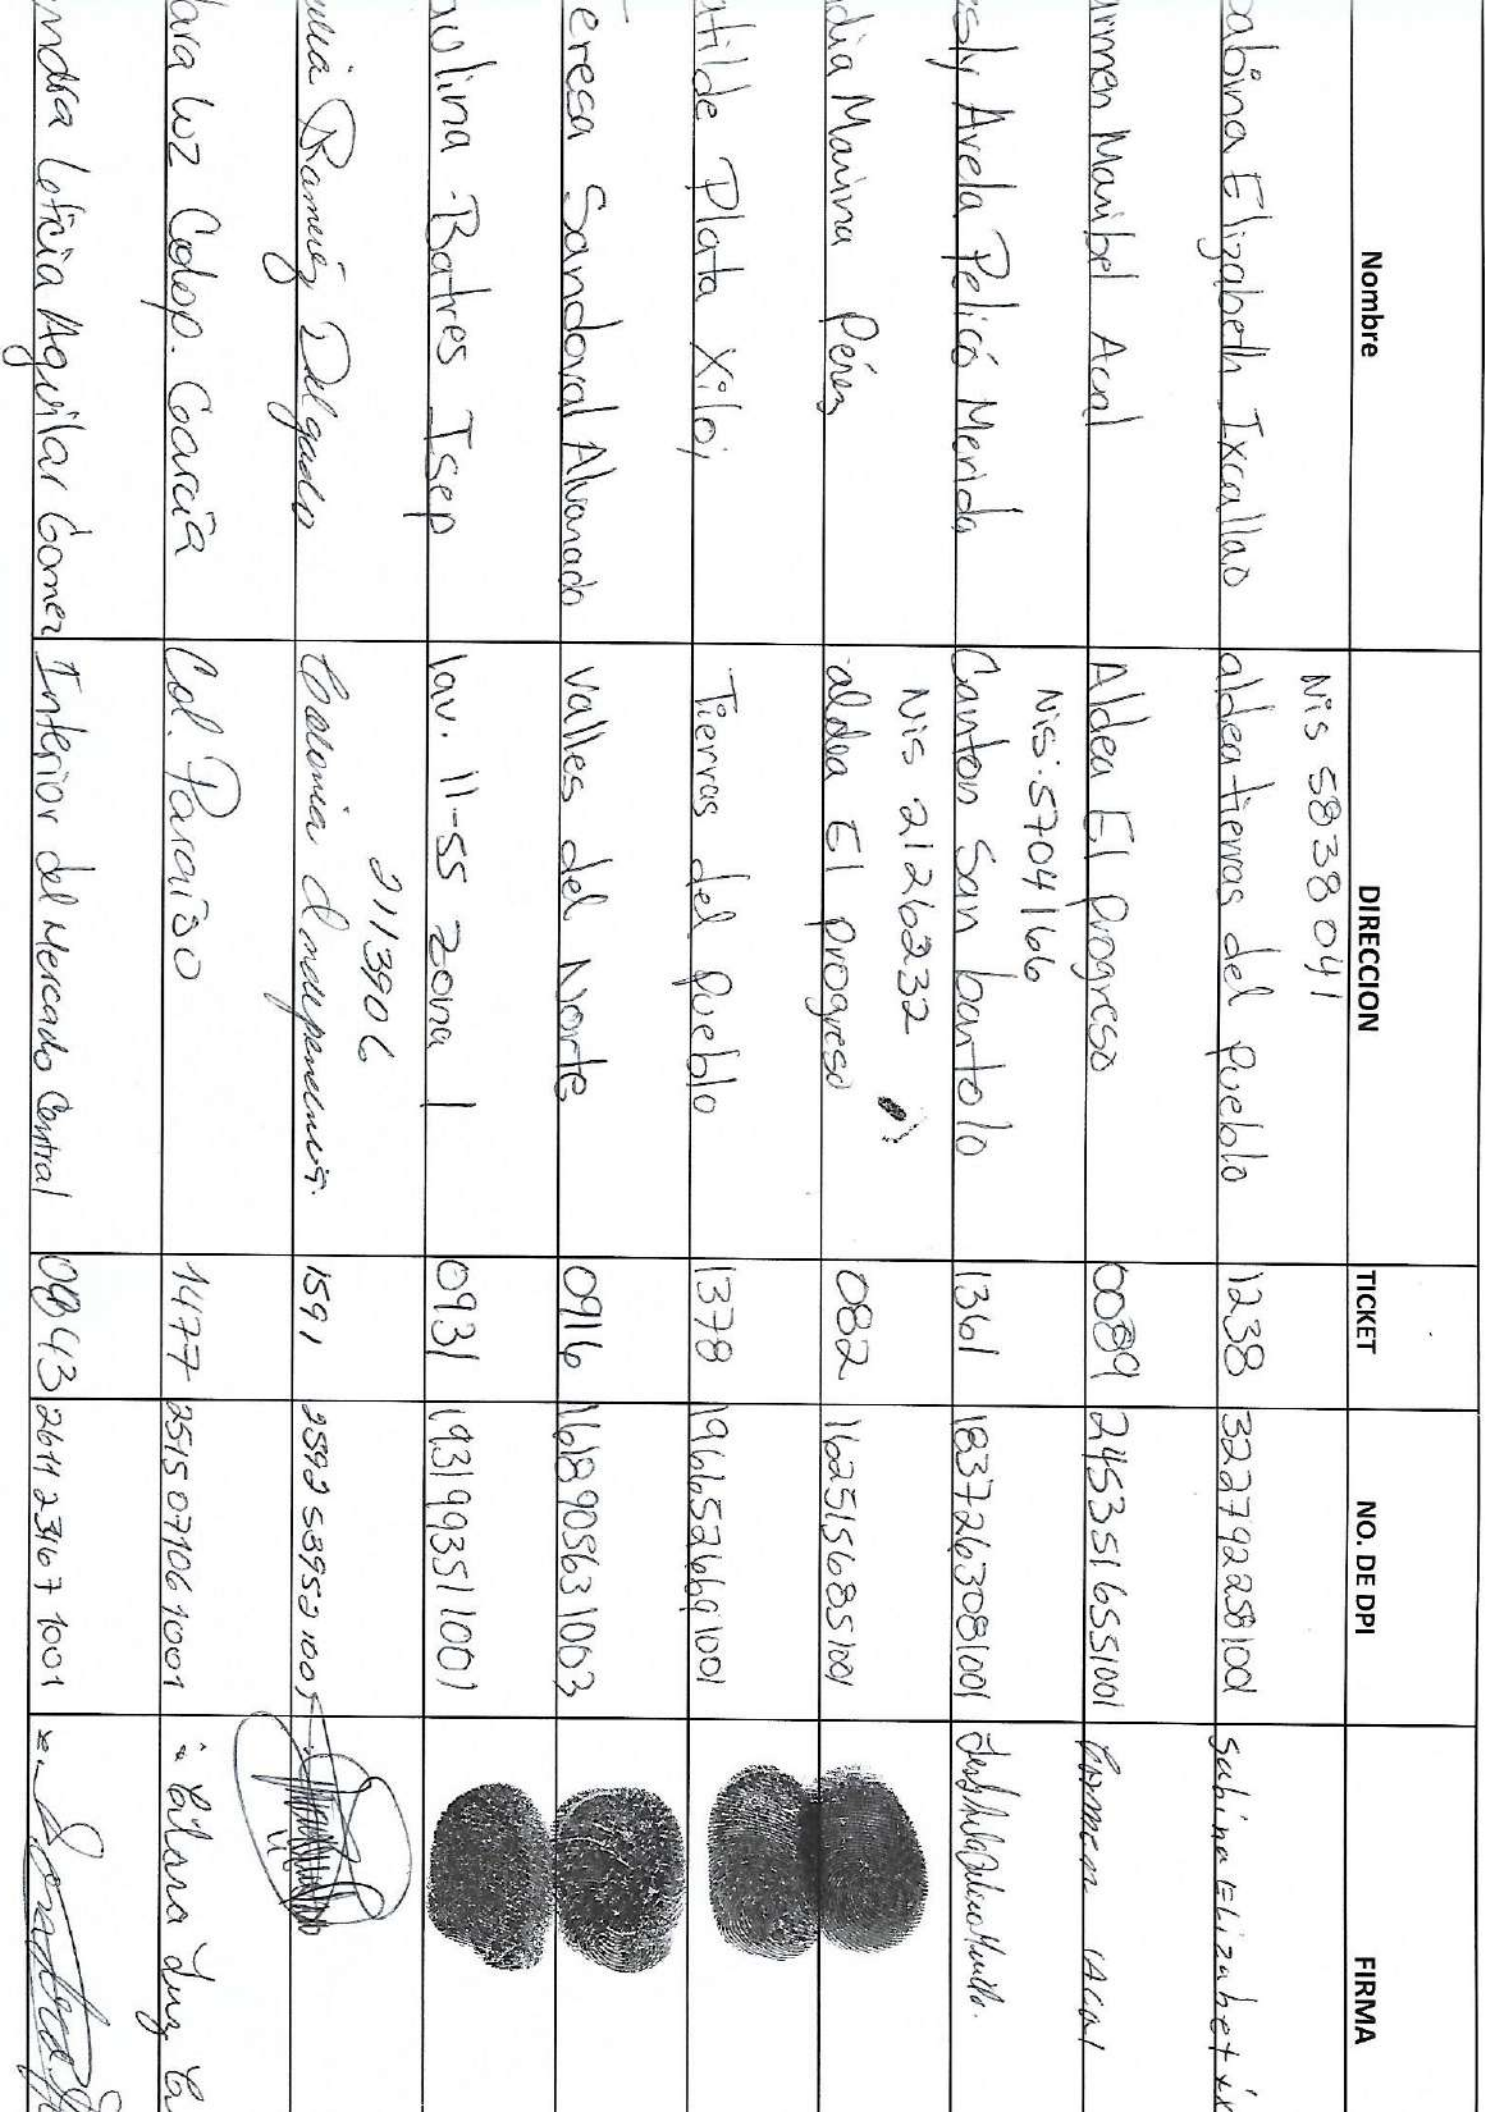 Nombre DIRECCION TICKET NO. DE DPI FIRMA
Nis 5838041
abina Elizabeth Ixcallao aldea tierras del pueblo 1238 3227922581001 Sabina Elizabet ix
armen Maribel Acal Aldea El progreso 0089 2453516551001 Carmen Acal
Nis: 5704166
sly Avela Pelicó Merida Canton San bartolo 1361 1837263081001
Nis 2126232
dia Marina Pérez aldea El progreso 082 1625156851001
atilde Plata Xiloj Tierras del pueblo 1378 1966526691001
eresa Sandoval Alvarado Valles del Norte 0916 1618905631003
aulina Batres Isep 1av. 11-55 zona 1 0931 1931993511001
2113906
Ramiréz Delgado Colonia independencia. 1591 2592539521001
lara Luz Colop. García Col. Paraiso 1477 2515071061001 Clara Luz C
andra Leticia Aguilar Gomez Interior del Mercado Central 2611231671001